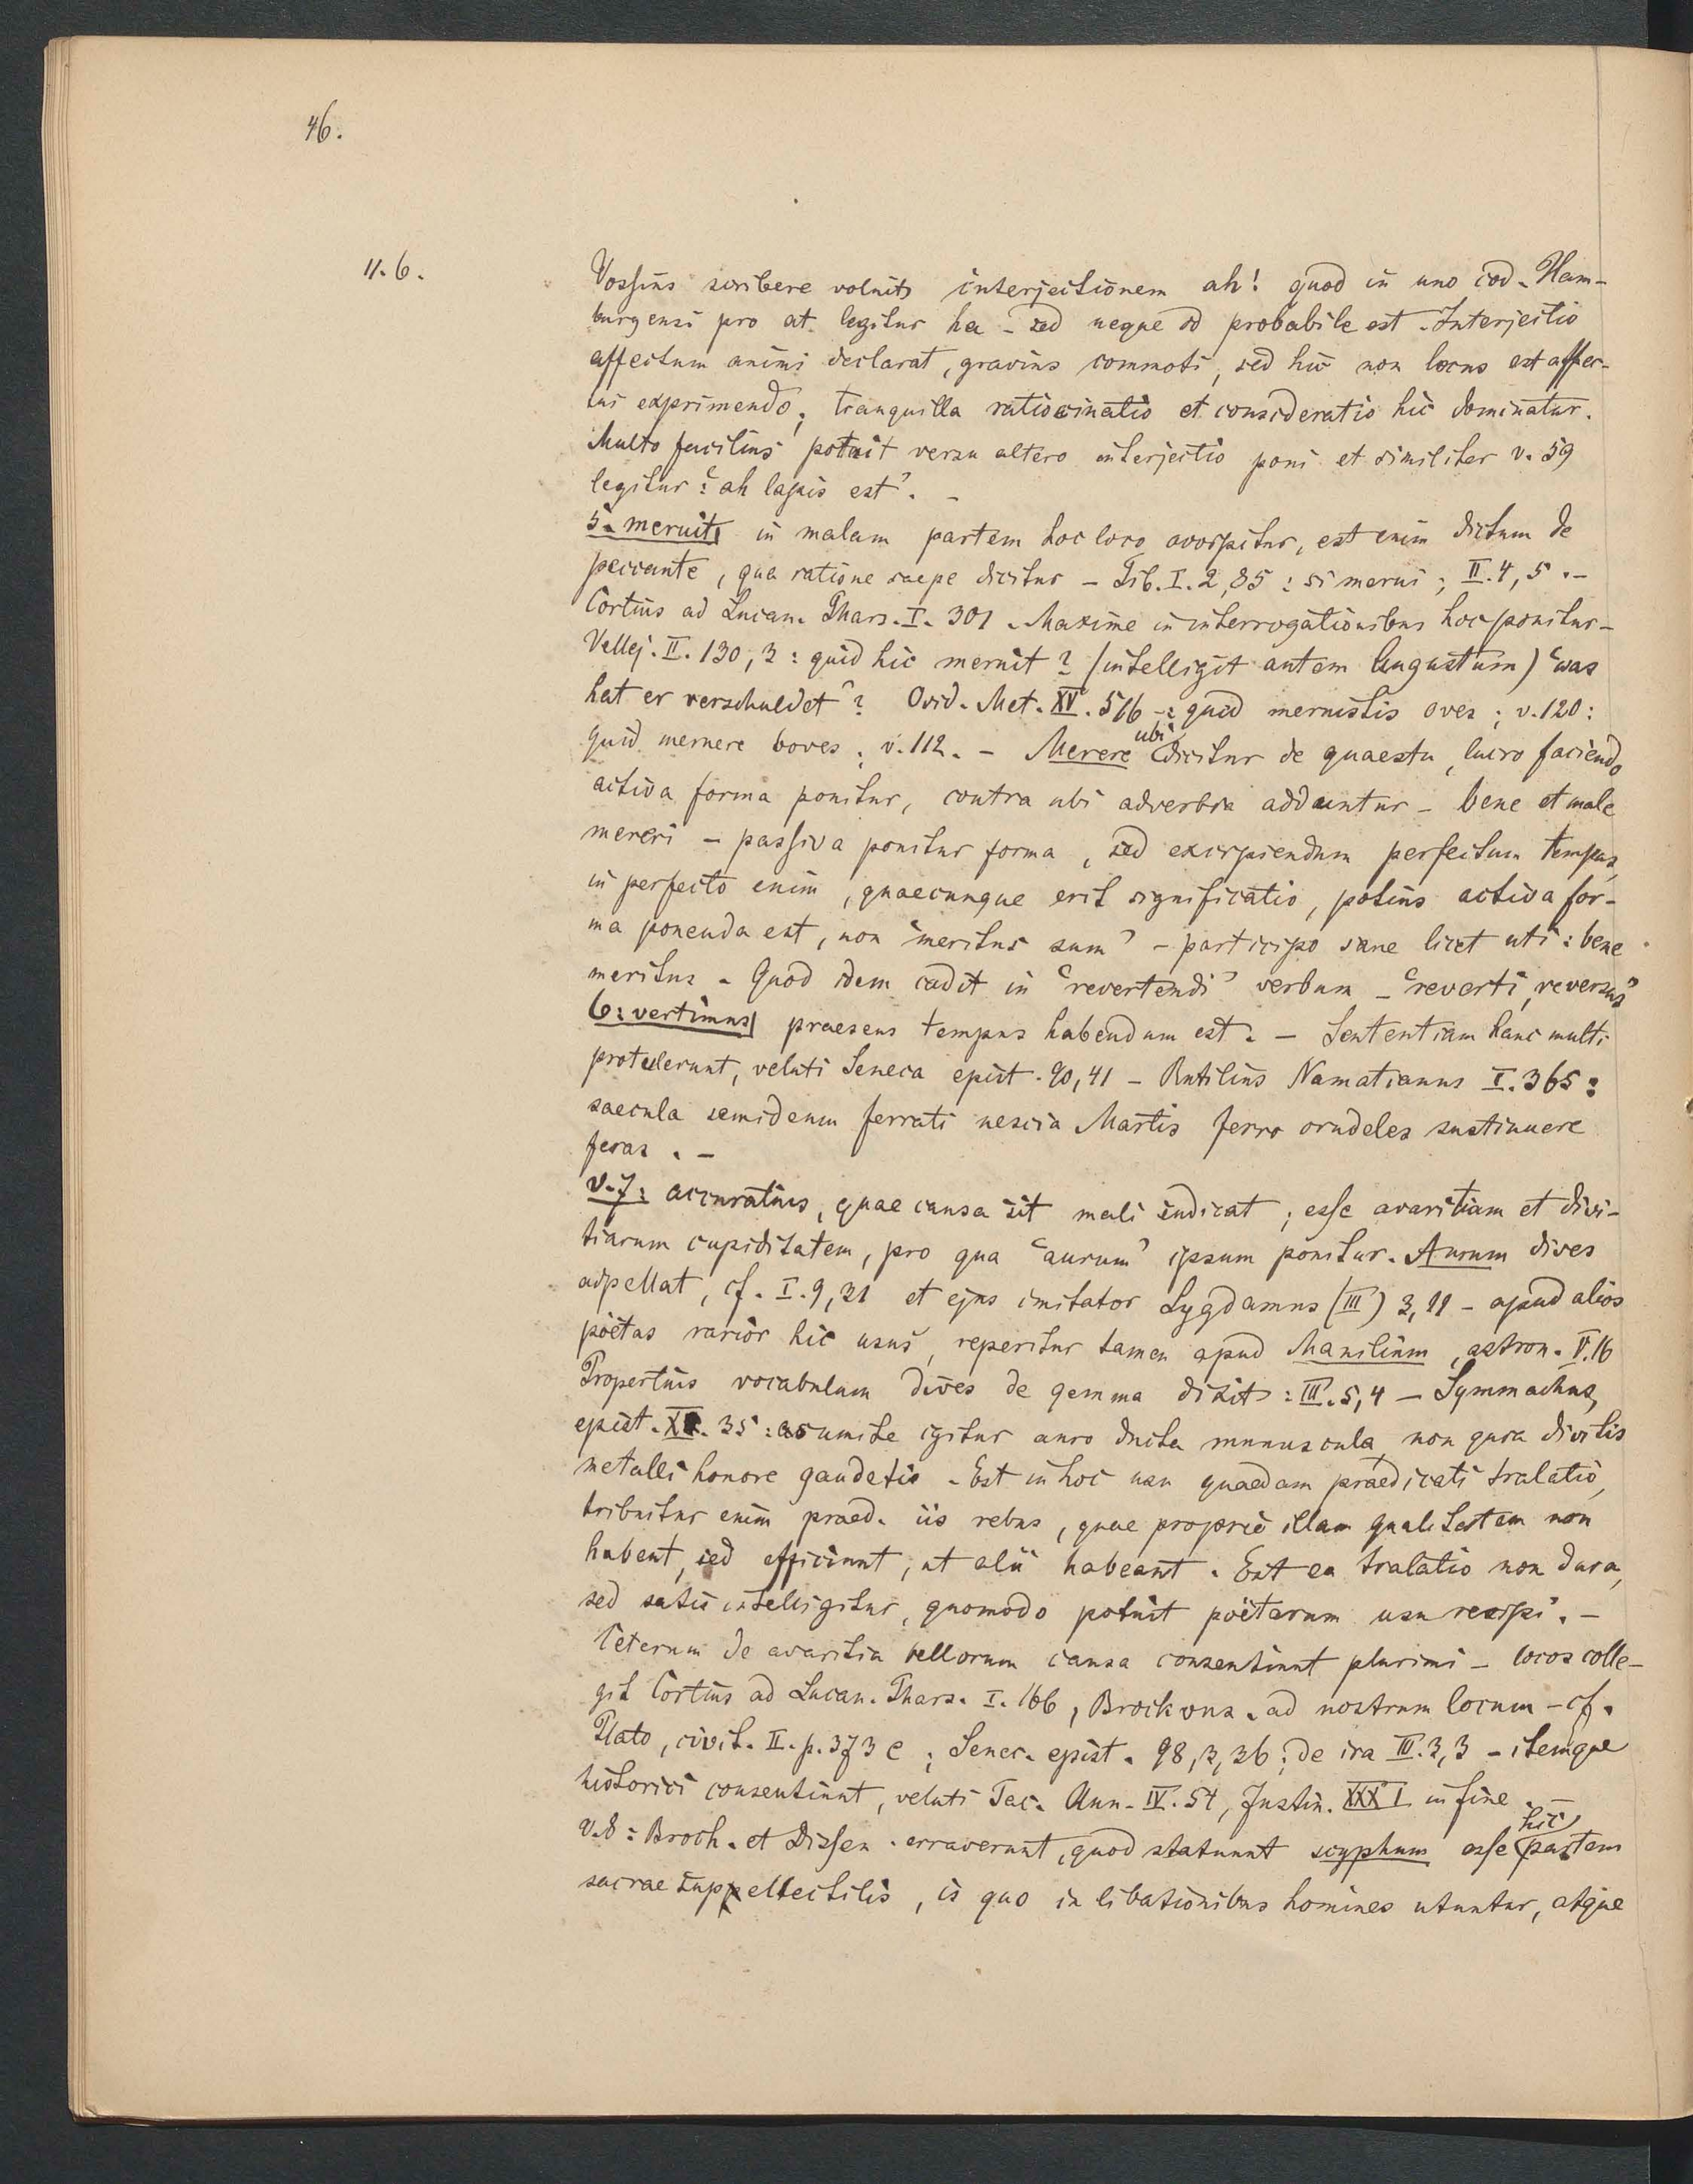 46.
11. 6.
Vossius scribere voluit interjectionem ah! quod in uno cod. Ham-
burgensi pro at legitur ha - sed neque id probabile est. Interjectio
affectum animi declarat, gravius commoti, sed hic non locus est affec-
tui exprimendo, tranquilla ratiocinatio et consideratio hic dominatur.
Multo facilius potuit versu altero interjectio poni et similiter v. 59
legitur: 'ah lapis est'. -
5. meruit] in malam partem hoc loco accipitur, est enim dictum de
peccante, qua ratione saepe dicitur - Tib. I. 2, 85: si merui; II. 4, 5. -
Cortius ad Lucan. Phars. I. 301. Maxime in interrogationibus hoc ponitur -
Vellej. II. 130, 3: quid hic meruit? (intelligit autem Augustum) 'was
hat er verschuldet'? Ovid. Met. XV. 516 -: quid meruistis oves; v. 120:
quid meruere boves; v. 112. - Merere ubi dicitur de quaestu, lucro faciendo
activa forma ponitur, contra ubi adverbia adduntur - bene et male
mereri - passiva ponitur forma, sed excipiendum perfectum tempus,
in perfecto enim, quaecunque erit significatio, potius activa for-
ma ponenda est, non 'meritus sum' - participo sane licet uti: bene
meritus. Quod idem cadit in 'revertendi' verbum - 'reverti, reversus'
6: vertimus] praesens tempus habendum est. - Sententiam hanc multi
protulerunt, veluti Seneca epist. 90, 41 - Rutilius Namatianus I. 365:
saecula semideum ferrati nescia Martis ferro crudeles sustinuere
feras. -
v. 7: accuratius, quae causa sit mali indicat; esse avaritiam et divi-
tiarum cupiditatem, pro qua 'aurum' ipsum ponitur. Aurum dives
adpellat, cf. I. 9, 31 et ejus imitator Lygdamus (III) 3, 11 - apud alios
poëtas rarior hic usus, reperitur tamen apud Manilium, astron. V. 16
Propertius vocabulum dives de gemma dixit: III. 5, 4 - Symmachus,
epist. 35: sumite igitur auro ducta munuscula, non quia divitis
metalli honore gaudetis. Est in hoc usu quaedam praedicati tralatio,
tribuitur enim praed. iis rebus, quae proprie illam qualitatem non
habent, sed efficiunt, ut alii habeant. Est ea tralatio non dura,
sed satis intelligitur, quomodo potuit poëtarum usu recipi. -
Ceterum de avaritia bellorum causa consentiunt plurimi - locos colle-
git Cortius ad Lucan. Phars. I. 166, Brockous. ad nostrum locum - cf.
Plato, civit. II. p. 373 e; Senec. epist. 98, 2, 36; de ira III. 3, 3 - itemque
historici consentiunt, veluti Tac. Ann. IV. 51, Justin. XXXI in fine. -
v. 8: Broch. et Dissen. erraverunt, quod statuunt scyphum esse hic partem
sacrae suppellectilis, is quo in libationibus homines utuntur, atque